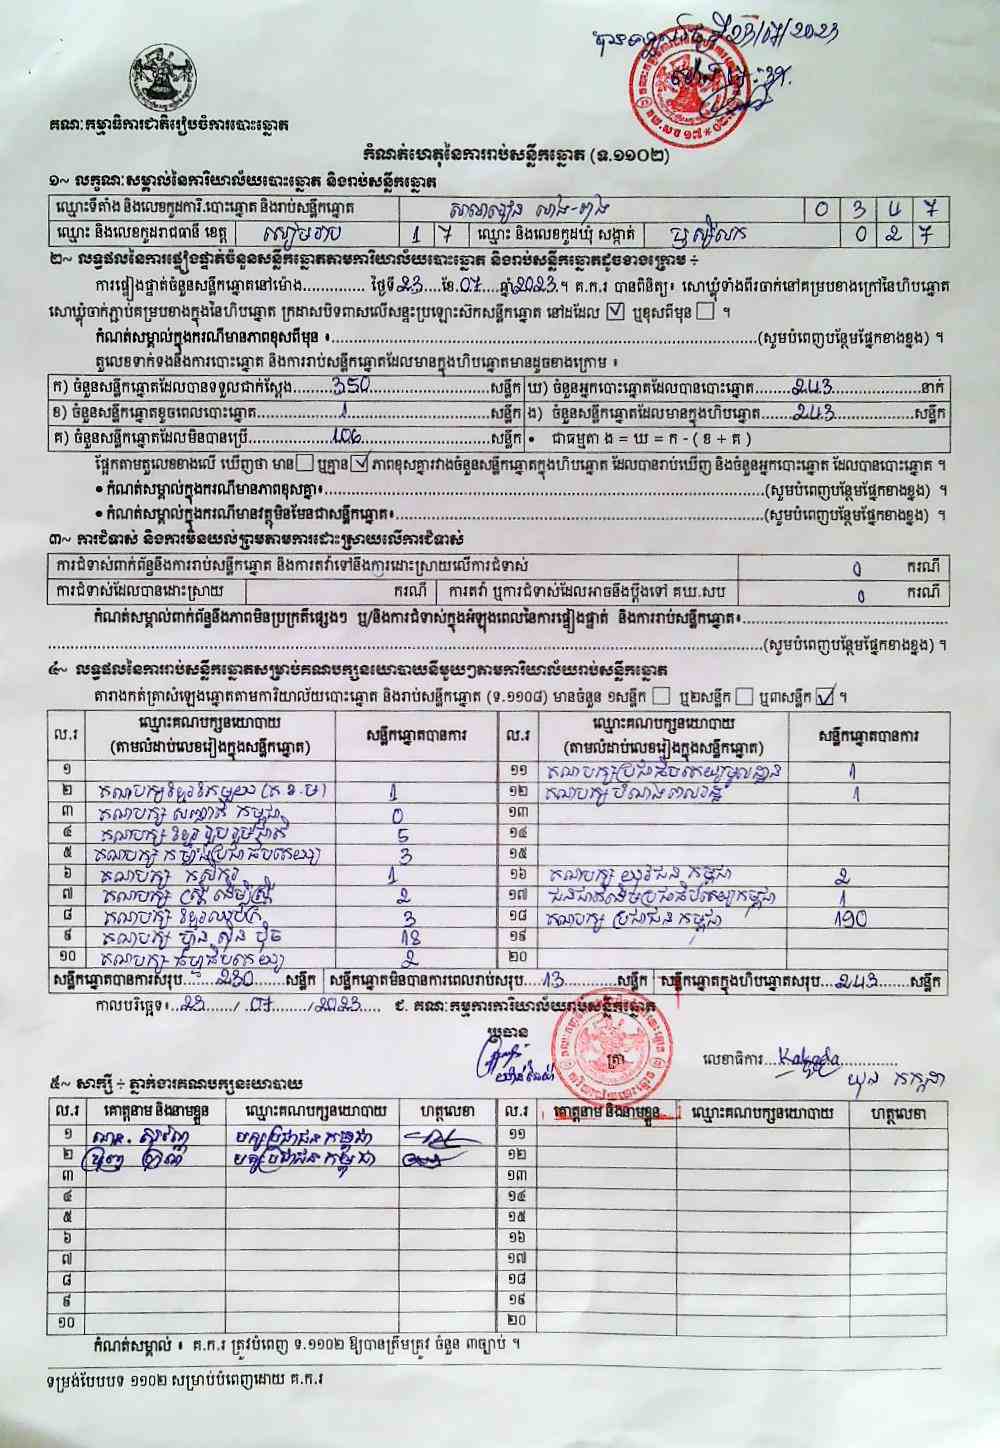 23/07/2023
គណៈកម្មាធិការជាតិរៀបចំការបោះឆ្នោត
កំណត់ហេតុនៃការរាប់សន្លឹកឆ្នោត (ទ.១១០២)
១~ លក្ខណៈសម្គាល់នៃការិយាល័យបោះឆ្នោត និងរាប់សន្លឹកឆ្នោត
ឈ្មោះទីតាំង និងលេខកូដការិ.បោះឆ្នោត និងរាប់សន្លឹកឆ្នោត សាលារៀន 0 3 4 7
ឈ្មោះ និងលេខកូដរាជធានី ខេត្ត សៀមរាប 1 7 ឈ្មោះ និងលេខកូដឃុំ សង្កាត់ 0 2 7
២~ លទ្ធផលនៃការផ្ទៀងផ្ទាត់ចំនួនសន្លឹកឆ្នោតតាមការិយាល័យបោះឆ្នោត និងរាប់សន្លឹកឆ្នោតដូចខាងក្រោម ÷
ការផ្ទៀងផ្ទាត់ចំនួនសន្លឹកឆ្នោតនៅម៉ោង.............. ថ្ងៃទី23....ខែ.07....ឆ្នាំ2023.។ គ.ក.រ បានពិនិត្យ៖ សោឃ្លុំទាំងពីរចាក់នៅគម្របខាងក្រៅនៃហិបឆ្នោត
សោឃ្លុំចាក់ភ្ជាប់គម្របខាងក្នុងនៃហិបឆ្នោត ក្រដាសបិទពាសលើសន្ទះប្រឡោះស៊កសន្លឹកឆ្នោត នៅដដែល ☑ ឬខុសពីមុន ☐ ។
កំណត់សម្គាល់ក្នុងករណីមានភាពខុសពីមុន ៖..............................(សូមបំពេញបន្ថែមផ្នែកខាងខ្នង) ។
តួលេខទាក់ទងនឹងការបោះឆ្នោត និងការរាប់សន្លឹកឆ្នោតដែលមានក្នុងហិបឆ្នោតមានដូចខាងក្រោម ៖
ក) ចំនួនសន្លឹកឆ្នោតដែលបានទទួលជាក់ស្តែង........350..............សន្លឹក ឃ) ចំនួនអ្នកបោះឆ្នោតដែលបានបោះឆ្នោត........243..............នាក់
ខ) ចំនួនសន្លឹកឆ្នោតខូចពេលបោះឆ្នោត..............1..............សន្លឹក ង) ចំនួនសន្លឹកឆ្នោតដែលមានក្នុងហិបឆ្នោត........243..............សន្លឹក
គ) ចំនួនសន្លឹកឆ្នោតដែលមិនបានប្រើ..............106..............សន្លឹក • ជាធម្មតា ង = ឃ = ក - ( ខ + គ )
ផ្អែកតាមតួលេខខាងលើ ឃើញថា មាន ☐ ឬគ្មាន ☑ ភាពខុសគ្នារវាងចំនួនសន្លឹកឆ្នោតក្នុងហិបឆ្នោត ដែលបានរាប់ឃើញ និងចំនួនអ្នកបោះឆ្នោត ដែលបានបោះឆ្នោត ។
• កំណត់សម្គាល់ក្នុងករណីមានភាពខុសគ្នា៖..............................(សូមបំពេញបន្ថែមផ្នែកខាងខ្នង) ។
• កំណត់សម្គាល់ក្នុងករណីមានវត្ថុមិនមែនជាសន្លឹកឆ្នោត៖..............................(សូមបំពេញបន្ថែមផ្នែកខាងខ្នង) ។
៣~ ការជំទាស់ និងការមិនយល់ព្រមតាមការដោះស្រាយលើការជំទាស់
ការជំទាស់ពាក់ព័ន្ធនឹងការរាប់សន្លឹកឆ្នោត និងការតវ៉ាទៅនឹងការដោះស្រាយលើការជំទាស់ 0 ករណី
ការជំទាស់ដែលបានដោះស្រាយ ករណី ការតវ៉ា ឬការជំទាស់ដែលអាចនឹងប្តឹងទៅ គឃ.សប 0 ករណី
កំណត់សម្គាល់ពាក់ព័ន្ធនឹងភាពមិនប្រក្រតីផ្សេងៗ ឬ/និងការជំទាស់ក្នុងអំឡុងពេលនៃការផ្ទៀងផ្ទាត់ និងការរាប់សន្លឹកឆ្នោត៖..............................
..............................(សូមបំពេញបន្ថែមផ្នែកខាងខ្នង) ។
៤~ លទ្ធផលនៃការរាប់សន្លឹកឆ្នោតសម្រាប់គណបក្សនយោបាយនីមួយៗតាមការិយាល័យរាប់សន្លឹកឆ្នោត
តារាងកត់ត្រាសំឡេងឆ្នោតតាមការិយាល័យបោះឆ្នោត និងរាប់សន្លឹកឆ្នោត (ទ.១១០៨) មានចំនួន ១សន្លឹក ☐ ឬ២សន្លឹក ☐ ឬ៣សន្លឹក ☑ ។
ល.រ ឈ្មោះគណបក្សនយោបាយ (តាមលំដាប់លេខរៀងក្នុងសន្លឹកឆ្នោត) សន្លឹកឆ្នោតបានការ ល.រ ឈ្មោះគណបក្សនយោបាយ (តាមលំដាប់លេខរៀងក្នុងសន្លឹកឆ្នោត) សន្លឹកឆ្នោតបានការ
១ ១១ គណបក្សប្រជាធិបតេយ្យមូលដ្ឋាន 1
២ គណបក្សខ្មែរឧកម្មយាន (គ.ខ.ម) 1 ១២ គណបក្ស 1
៣ គណបក្ស សញ្ជាតិ កម្ពុជា 0 ១៣
៤ គណបក្ស ខ្មែររួបរួមជាតិ 5 ១៤
៥ គណបក្ស កម្លាំងប្រជាធិបតេយ្យ 3 ១៥
៦ គណបក្ស កសិករ 1 ១៦ គណបក្ស យុវជន កម្ពុជា 2
៧ គណបក្ស ស្ត្រី ដើម្បីស្ត្រី 2 ១៧ ជនជាតិដើមប្រជាធិបតេយ្យកម្ពុជា 1
៨ គណបក្ស ខ្មែរឈប់ក្រ 3 ១៨ គណបក្ស ប្រជាជន កម្ពុជា 190
៩ គណបក្ស ហ៊្វុន ស៊ិន ប៉ិច 18 ១៩
១០ គណបក្ស ធម្មាធិបតេយ្យ 2 ២០
សន្លឹកឆ្នោតបានការសរុប.....230.....សន្លឹក សន្លឹកឆ្នោតមិនបានការពេលរាប់សរុប...13.....សន្លឹក សន្លឹកឆ្នោតក្នុងហិបឆ្នោតសរុប...243.....សន្លឹក
កាលបរិច្ឆេទ៖..23....../..07....../..2023..... ជ. គណៈកម្មការការិយាល័យរាប់សន្លឹកឆ្នោត
ប្រធាន
ត្រា លេខាធិការ....Kakada..........
យុន កក្កដា
៥~ សាក្សី ÷ ភ្នាក់ងារគណបក្សនយោបាយ
ល.រ គោត្តនាម និងនាមខ្លួន ឈ្មោះគណបក្សនយោបាយ ហត្ថលេខា ល.រ គោត្តនាម និងនាមខ្លួន ឈ្មោះគណបក្សនយោបាយ ហត្ថលេខា
១ បក្សប្រជាជនកម្ពុជា ១១
២ បក្សប្រជាជនកម្ពុជា ១២
៣ ១៣
៤ ១៤
៥ ១៥
៦ ១៦
៧ ១៧
៨ ១៨
៩ ១៩
១០ ២០
កំណត់សម្គាល់ ៖ គ.ក.រ ត្រូវបំពេញ ទ.១១០២ ឱ្យបានត្រឹមត្រូវ ចំនួន ៣ច្បាប់ ។
ទម្រង់បែបបទ ១១០២ សម្រាប់បំពេញដោយ គ.ក.រ